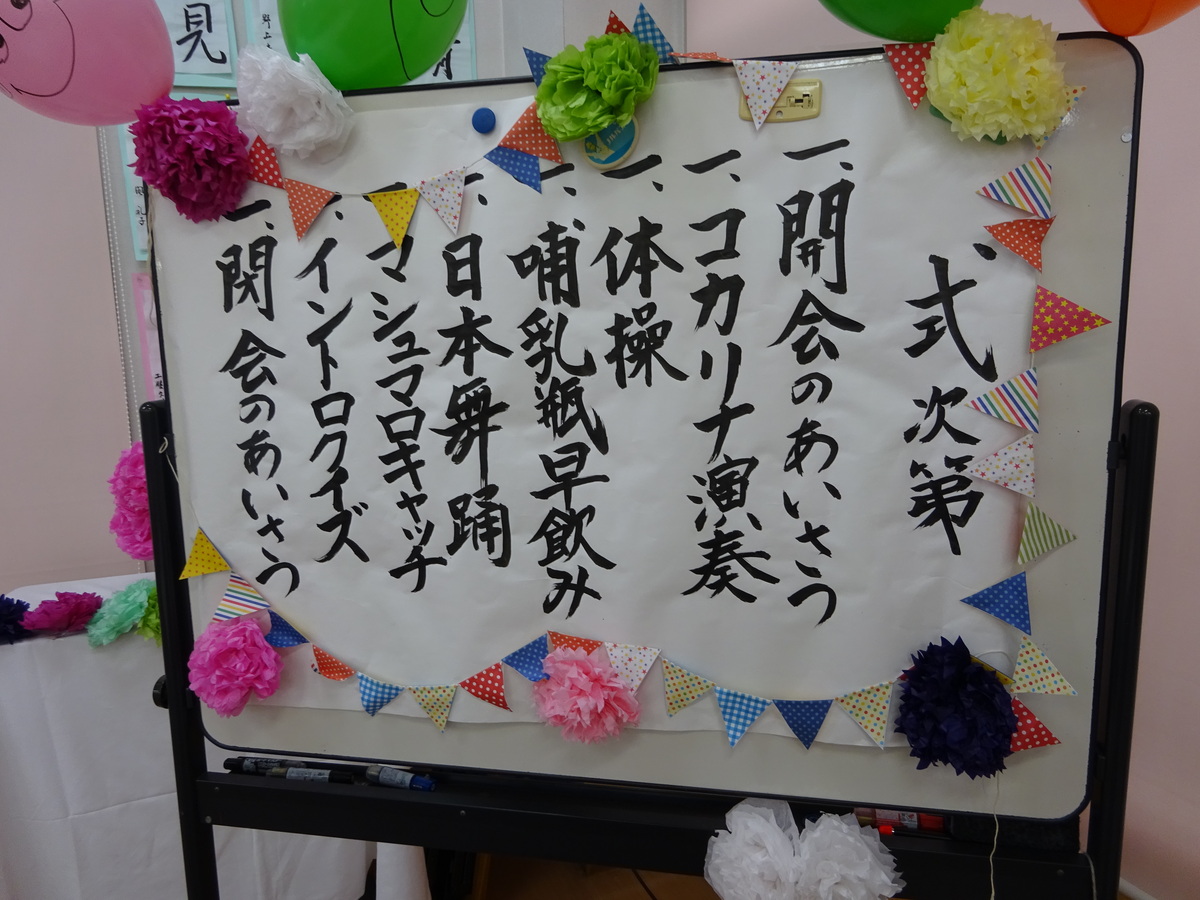 式次第
一、開会のあいさつ
一、コカリナ演奏
一、体操
一、哺乳瓶早飲み
一、日本舞踊
一、マシュマロキャッチ
一、イントロクイズ
一、閉会のあいさつ
見